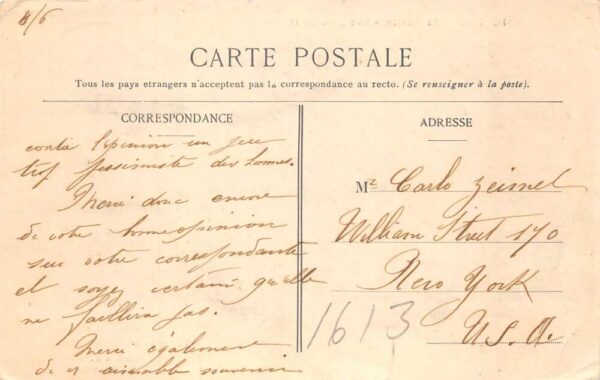 4/6
CARTE POSTALE
Tous les pays etrangers n'acceptent pas la correspondance au recto. (Se renseigner à la poste).
CORRESPONDANCE
contre l'opinion un peu
trop pessimiste des hommes.
Merci donc encore
de votre bonne opinion
sur votre correspondante
et soyez certain qu'elle
ne faillira pas.
Merci également
de aimable souvenir
ADRESSE
Mr Carlo
William Street 170
New York
U.S.A.
1613